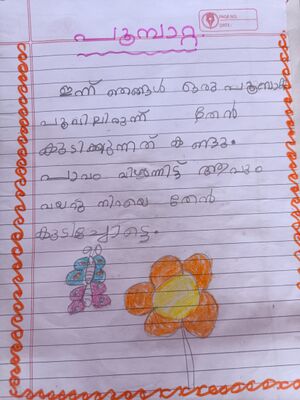 പൂമ്പാറ്റ
PAGE NO.
DATE
ഇന്ന് ഞങ്ങൾ ഒരു പൂമ്പാറ്റ
പൂവിലിരുന്ന് തേൻ
കുടിക്കുന്നത് കണ്ടു.
പാവം വിശന്നിട്ട്
വയറു നിറയെ തേൻ
കുടിച്ചോട്ടെ.